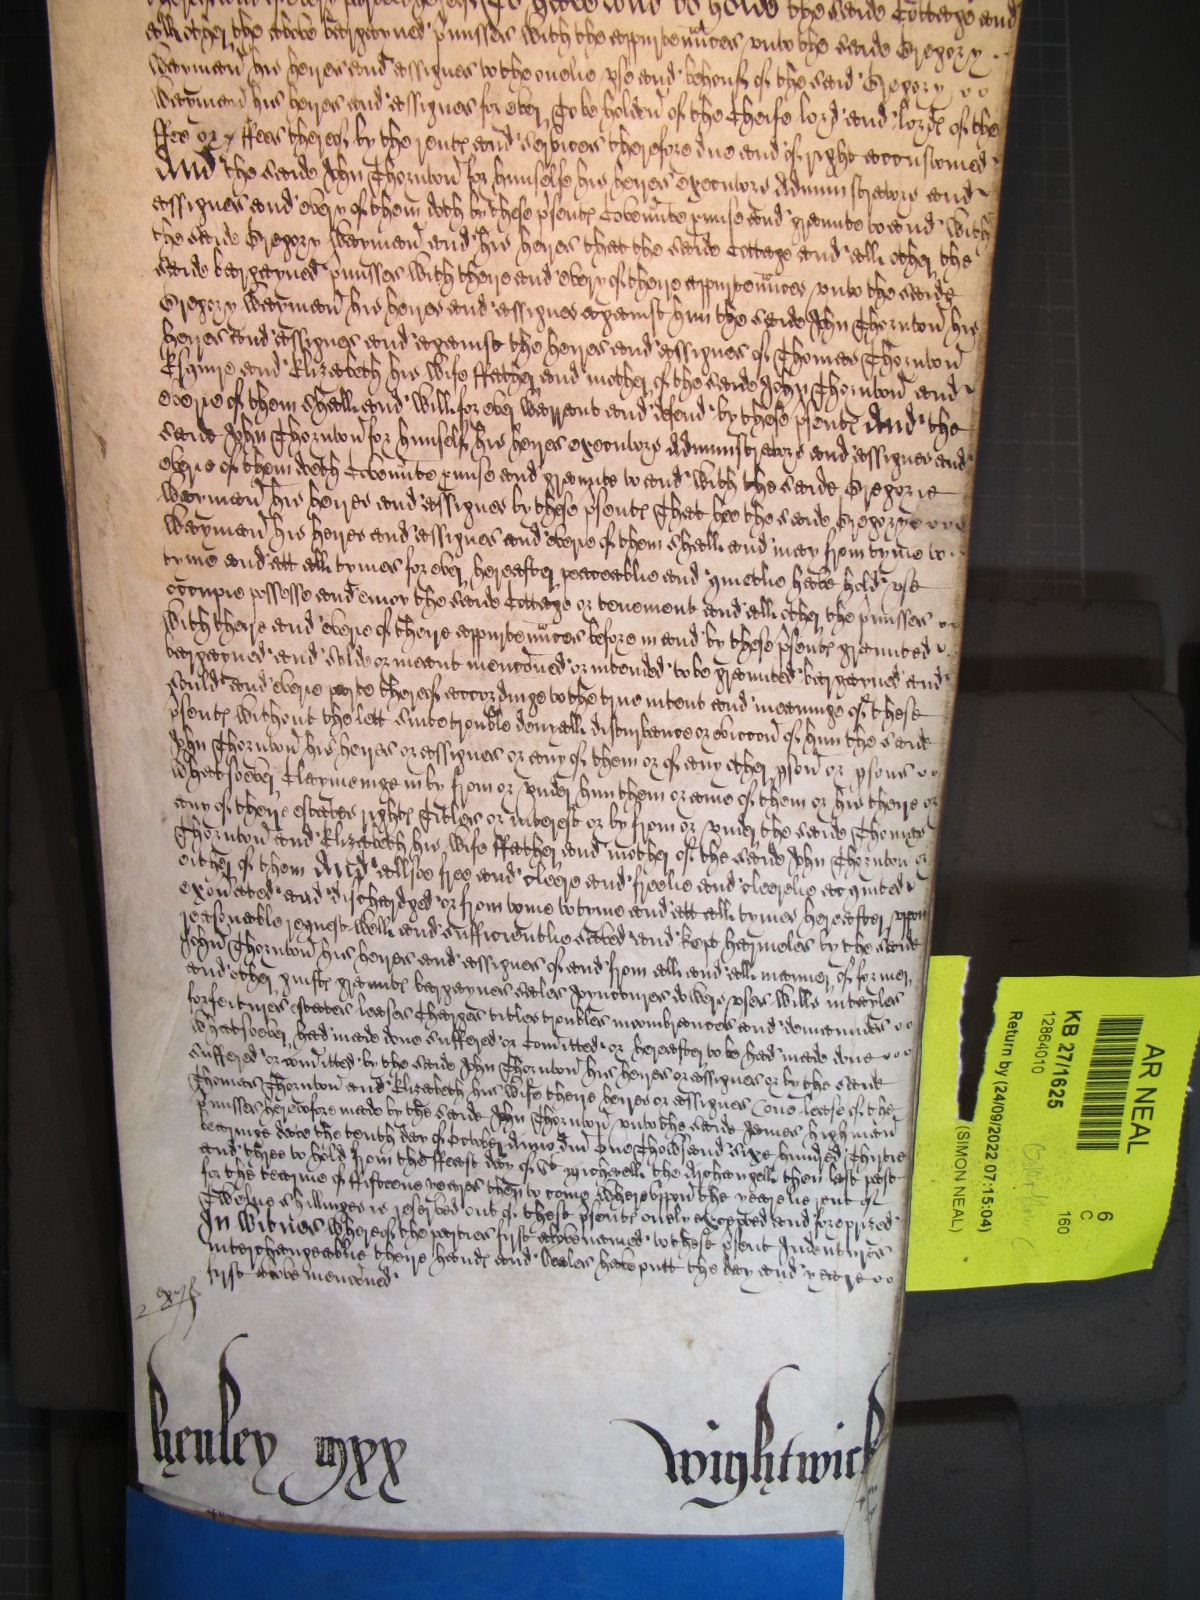 To have and to holde the saide Cottage and
all other the above bargayned p'misses with the appurten'nces unto the saide Gregory
Wayman his heires and assignes to the onelie use and behoufe of the said Gregory
Wayman his heires and assignes for ever To be holden of the Cheife lord and lords of the
ffee or ffees thereof by the rents and services therefore due and of right accustomed
And the saide John Thornton for himselfe his heires executors Administrators and
assignes and every of them doth by these p'sents Coven'nte p'mise and graunte to and with
the saide Gregory Wayman and his heires that the saide Cottage and all other the
saide bargayned p'misses with theire and every of theire appurten'nces unto the saide
Gregory Wayman his heires and assignes against him the saide John Thornton his
heires and assignes and against the heires and assignes of Thomas Thornton
Esquire and Elizabeth his wife ffather and mother of the saide John Thornton and
everie of them shall and will for ever warrant and defend by these p'sents And the
saide John Thornton for himself his heires executors Administrators and assignes and
everie of them doth Coven'nte p'mise and graunte to and with the saide Gregorie
Wayman his heires and assignes by these p'sents That hee the saide Gregory
Wayman his heires and assignes and everie of them shall and may from tyme to
tyme and att all tymes for ever hereafter peaceablie and quietlie have hold use
occupie possesse and enioy the saide Cottage or tenement and all other the p'misses
with theire and everie of theire appurten'nces before in and by these p'sents graunted
bargayned and solde or meant menc'oned or intended to be graunted bargayned and
sould and everie parte thereof accordinge to the true intent and meaninge of these
p'sents without the lett suite trouble denyall disturbance or evicc'on of him the saide
John Thornton his heires or assignes or any of them or of any other p'son or p'sons
whatsoever Claymeinge in by from or under him them or anie of them or his theire or
any of theire estates rights Titles or interest or by from or under the saide Thomas
Thornton and Elizabeth his wife ffather and mother of the saide John Thornton or
either of them And allsoe free and cleere and freelie and cleerelie acquited
exon'ated and dischardged or from tyme to tyme and att all tymes hereafter upon
reasonable request well and sufficientlie saved and kept harmeles by the saide
John Thornton his heires and assignes of and from all and all manner of former
and other guifts graunts bargaynes sales Joynctures dowers uses wills intayles
forfeitures estates leases Charges titles troubles incombrances and demaundes
whatsoever had made done suffered or Com'itted or hereafter to be had made done
suffered or com'itted by the saide John Thornton his heires or assignes or by the saide
Thomas Thornton and Elizabeth his wife theire heires or assignes (one lease of the
p'misses heretofore made by the saide John Thornton unto the saide James highman
bearinge date the tenth day of October Anno d'm One Thousand Sixe hundred Thirtie
and three to hold from the ffeast day of St Michaell the Archangell then last past
for the tearme of fifteene yeares then to come whereuppon the yearelie rent of
Twelve shillinges is reserved out of these p'sents onely excepted and foreprized
In witnes whereof the parties first above named to these p'sent Indentures
interchangeablie theire hands and Seales have putt the day and yeare
first above menc'oned
henley
wightwick
AR NEAL
6
C
160
KB 27/1625
12864010
Return by (24/09/2022 07:15:04)
(SIMON NEAL)